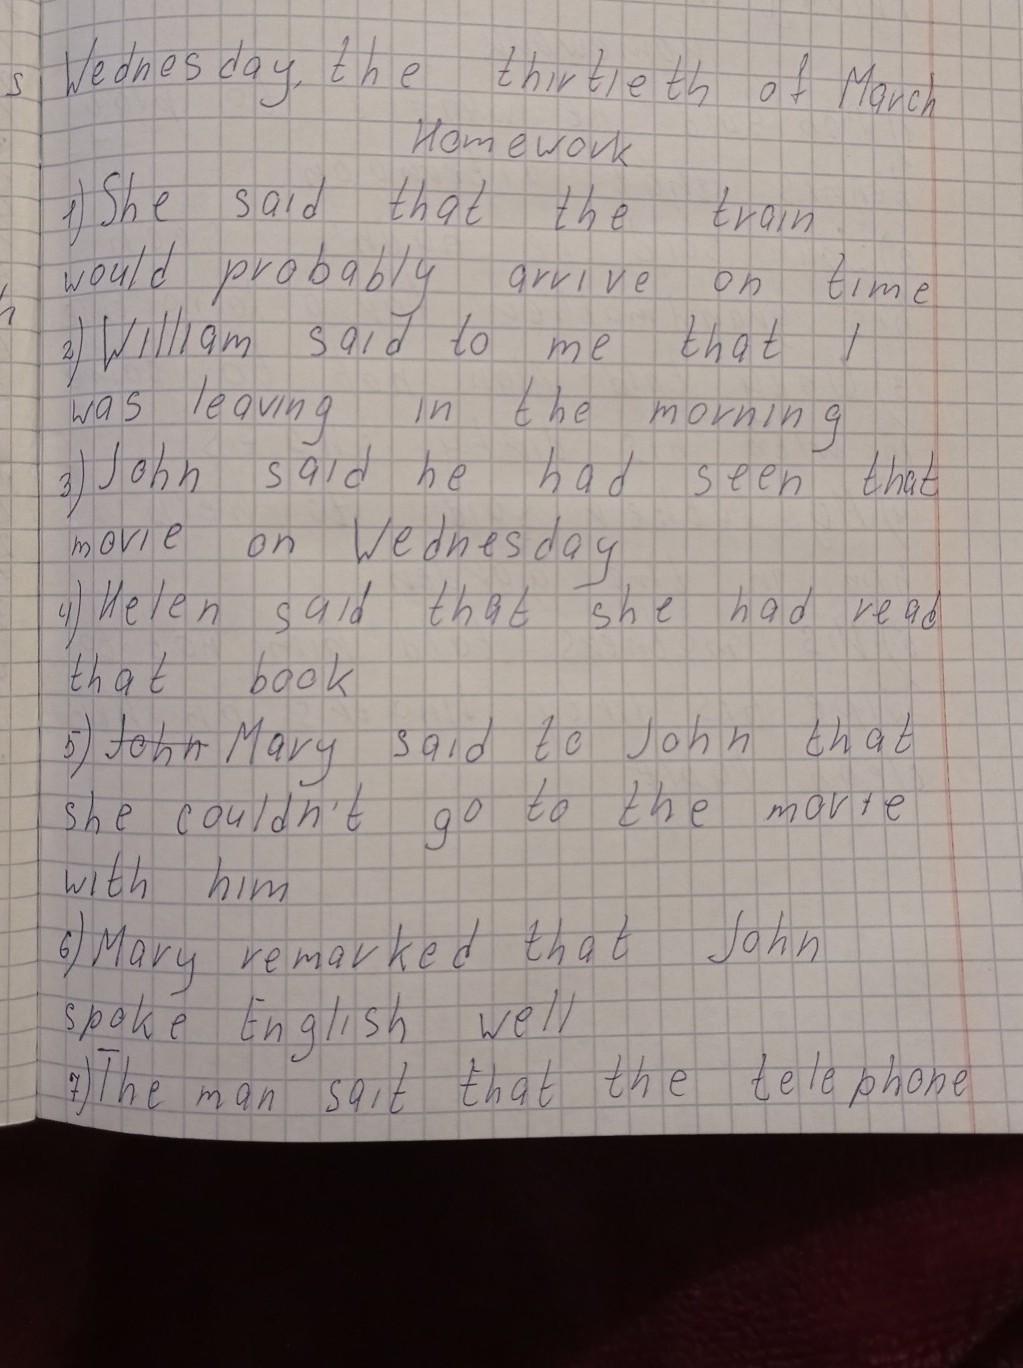 s Wednesday, the thirtieth of March
Homework
1) She said that the train
would probably arrive on time
h
2) William said to me that I
was leaving in the morning
3) John said he had seen that
movie on Wednesday
4) Helen said that she had read
that book
5) John Mary said to John that
she couldn't go to the movie
with him
6) Mary remarked that John
spoke English well
7) The man sait that the telephone